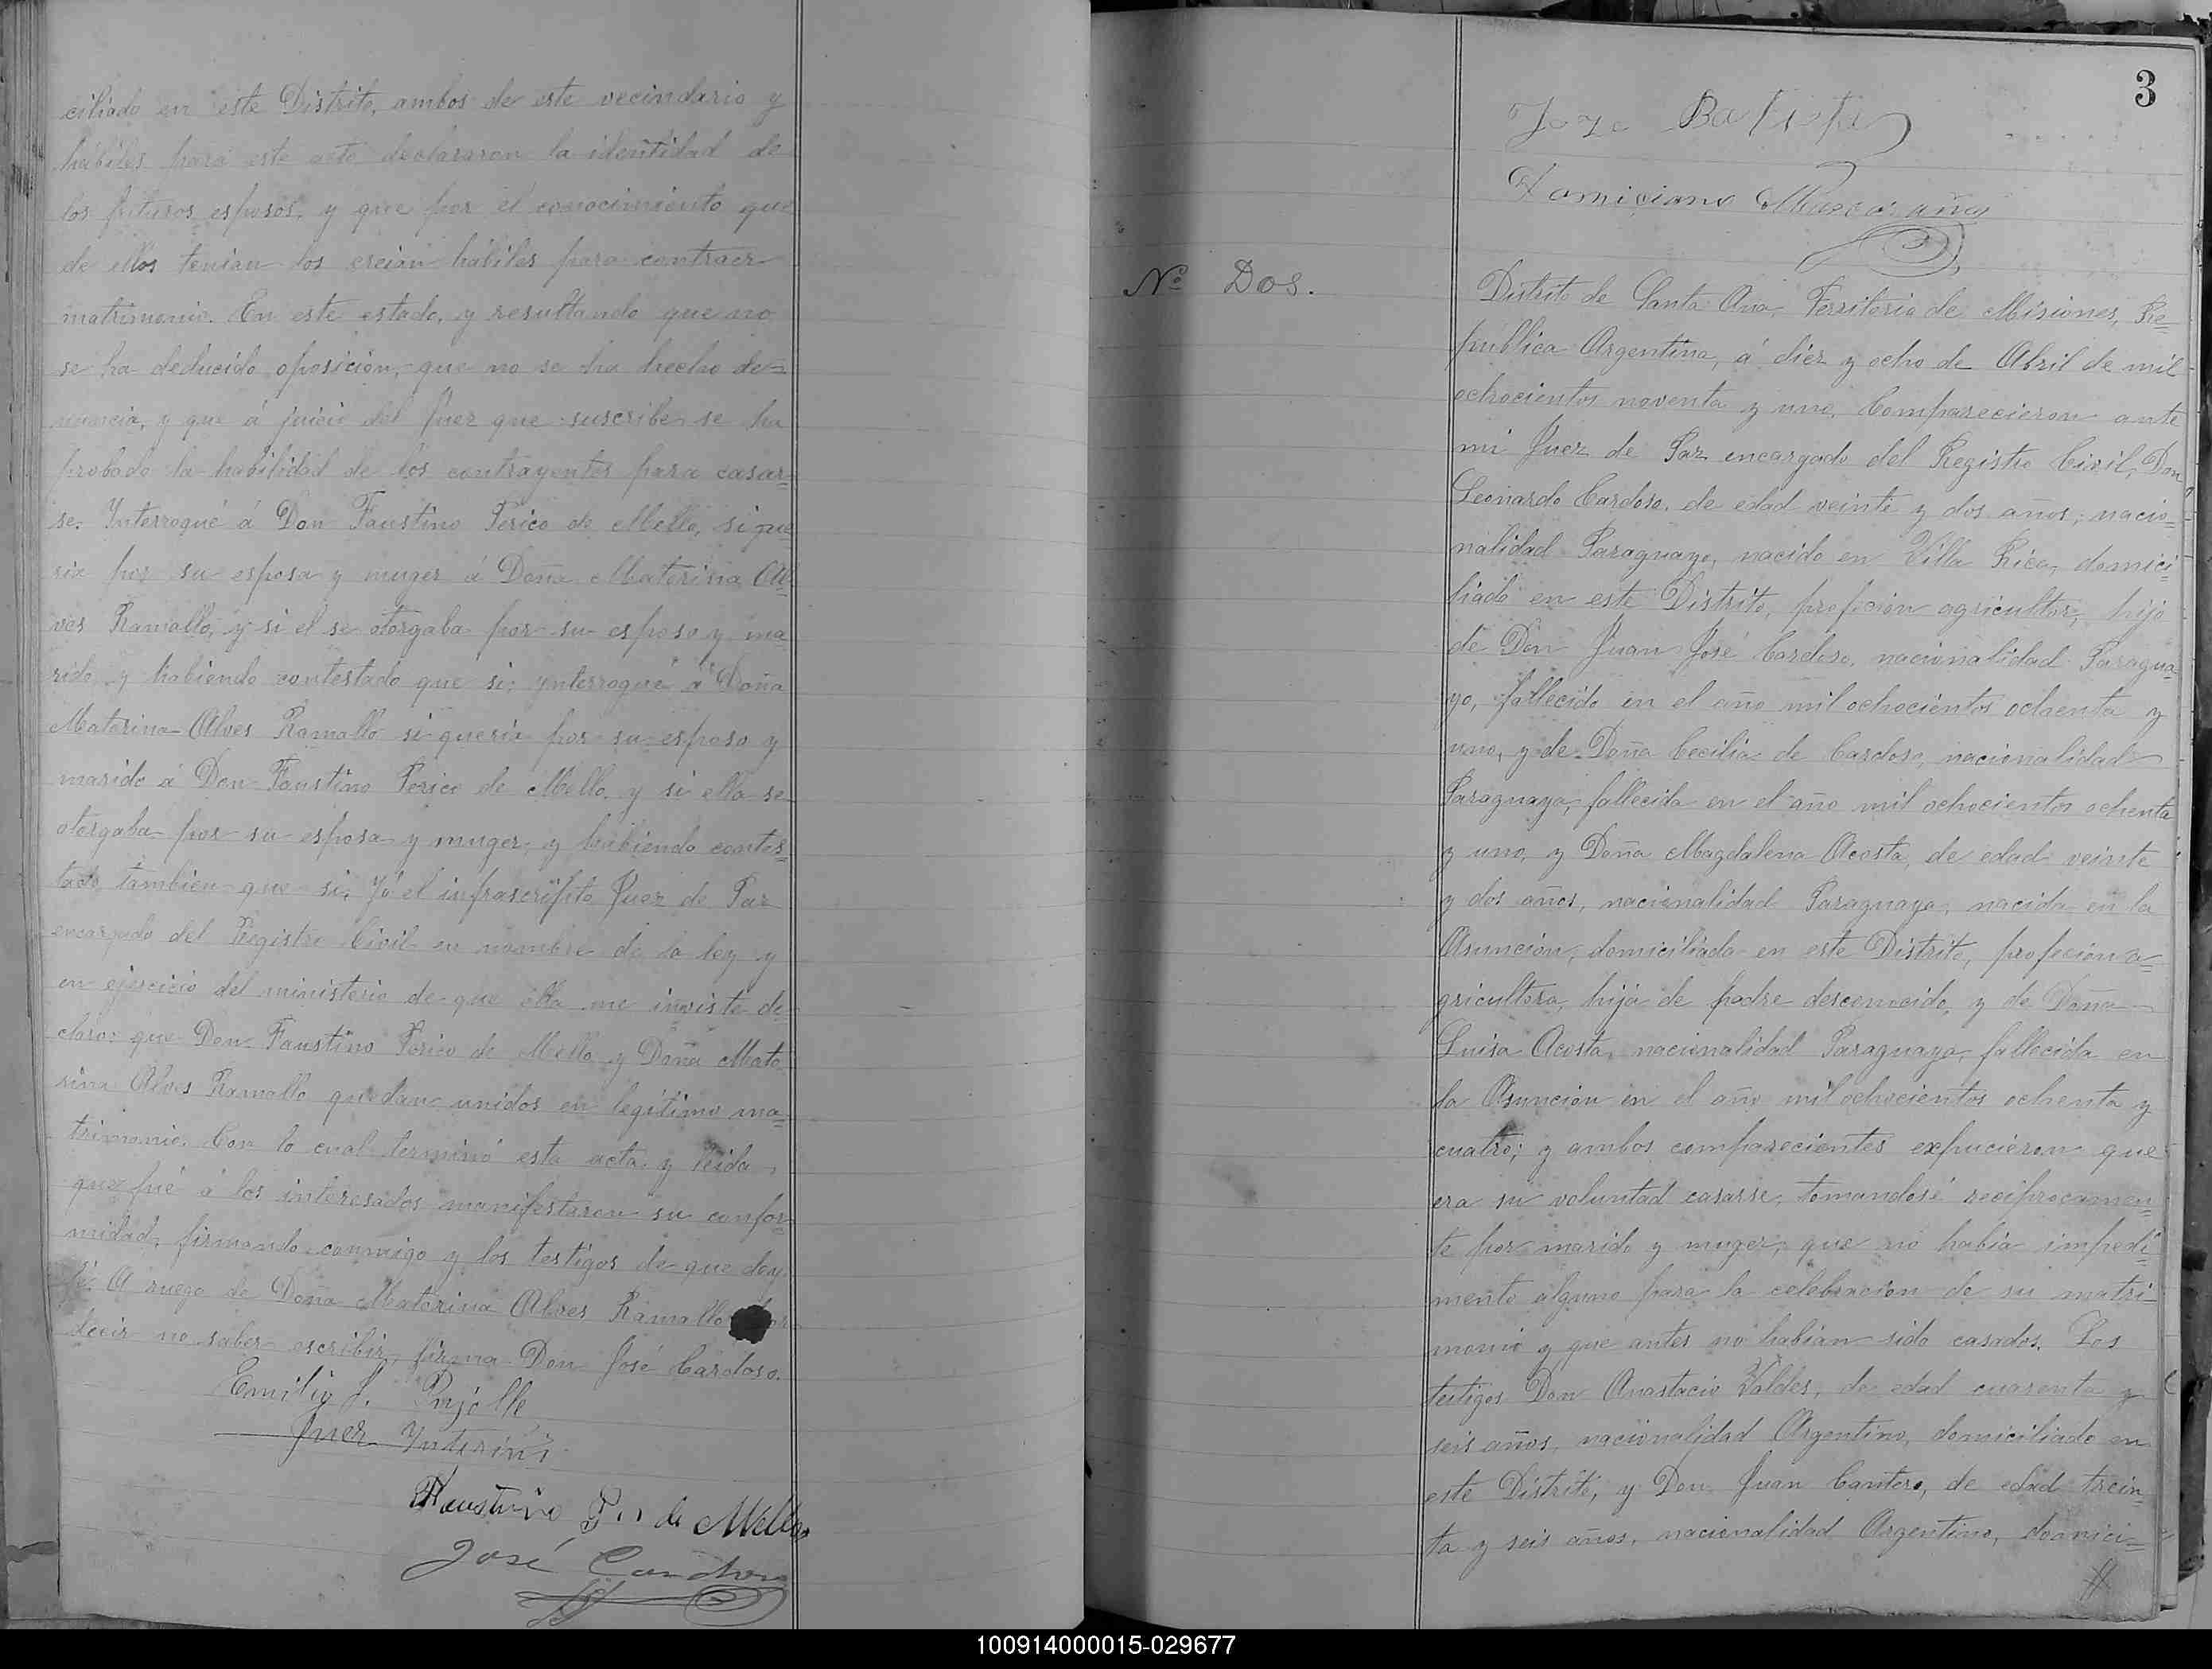 ciliado en este Distrito, ambos de este vecindario y
hábiles para este acto declararon la identidad de
los futuros esposos, y que por el conocimiento que
de ellos tenian los creian hábiles para contraer
matrimonio. En este estado, y resultando que no
se ha deducido oposicion, que no se ha hecho de=
nuncia, y que á juicio del Juez que suscribe se ha
probado la habilidad de los contrayentes para casar=
se. Ynterrogué á Don Faustino Perico de Mello, si que
ria por su esposa y muger á Doña Materina Al=
ves Ramallo, y si el se otorgaba por su esposo y ma
rido y habiendo contestado que si; ynterrogué á Doña
Materina Alves Ramallo si queria por su esposo y
marido á Don Faustino Perico de Mello y si ella se
otorgaba por su esposa y muger, y habiendo contes=
tado tambien que si, Yó el infrascripto Juez de Paz
encargado del Registro Civil en nombre de la ley y
en ejercicio del ministerio de que ella me inviste de=
claro: que Don Faustino Perico de Mello y Doña Mate
rina Alves Ramallo quedan unidos en legitimo ma=
trimonio. Con lo cual terminó esta acta y leida
que fué á los interesados manifestaron su confor=
midad, firmando conmigo y los testigos de que doy
fé. A ruego de Doña Materina Alves Ramallo
decir no saber escribir, firma Don José Cardoso.
Emilio J. Pujolle
Juez Ynterino
Faustino de Mello
José Cardoso
3
Joze Batista
Domiciano
Nº Dos.
Distrito de Santa Ana, Territorio de Misiones, Re=
pública Argentina, á diez y ocho de Abril de mil
ochocientos noventa y uno. Comparecieron ante
mi Juez de Paz encargado del Registro Civil, Don
Leonardo Cardoso, de edad veinte y dos años, nacio=
nalidad Paraguayo, nacido en Villa Rica, domici=
liado en este Distrito, profecion agricultor, hijo
de Don Juan José Cardoso, nacionalidad Paragua=
yo, fallecido en el año mil ochocientos ochenta y
uno, y de Doña Cecilia de Cardoso, nacionalidad
Paraguaya, fallecida en el año mil ochocientos ochenta
y uno, y Doña Magdalena Acosta, de edad veinte
y dos años, nacionalidad Paraguaya, nacida en la
Asuncion, domiciliada en este Distrito, profecion a=
gricultora, hija de padre desconocido, y de Doña
Luisa Acosta, nacionalidad Paraguaya, fallecida en
la Asuncion en el año mil ochocientos ochenta y
cuatro; y ambos comparecientes expucieron que
era su voluntad casarse, tomandosé reciprocamen=
te por marido y muger, que no habia impedi=
mento alguno para la celebracion de su matri=
monio y que antes no habian sido casados. Los
testigos Don Anastacio Valdes, de edad cuarenta y
seis años, nacionalidad Argentino, domiciliado en
este Distrito, y Don Juan Cantero, de edad trein=
ta y seis años, nacionalidad Argentino, domici=
100914000015-029677